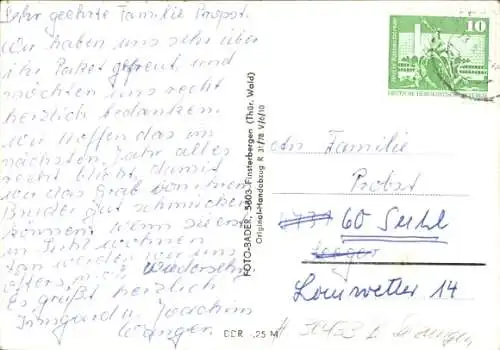 Sehr geehrte Familie Propst.
Wir haben uns sehr über
ihr Paket gefreut, und
möchten uns recht
herzlich bedanken.
Wir hoffen das im
nächsten Jahr alles
recht blüht, damit
wir das Grab von Ihren
Bruder gut schmücken
können. Wenn sie erst
in Suhl wohnen
kann wir uns
öfters, wiedersehn.
Es grüßt herzlich
Irmgard u. Joachim
FOTO-BADER, 5803 Finsterbergen (Thür. Wald)
Original-Handabzug R 31/78 V/6/10
DDR -,25 M
10
DEUTSCHE DEMOKRATISCHE REPUBLIK
An Familie
Probst
60 Suhl
Lauwetter 14